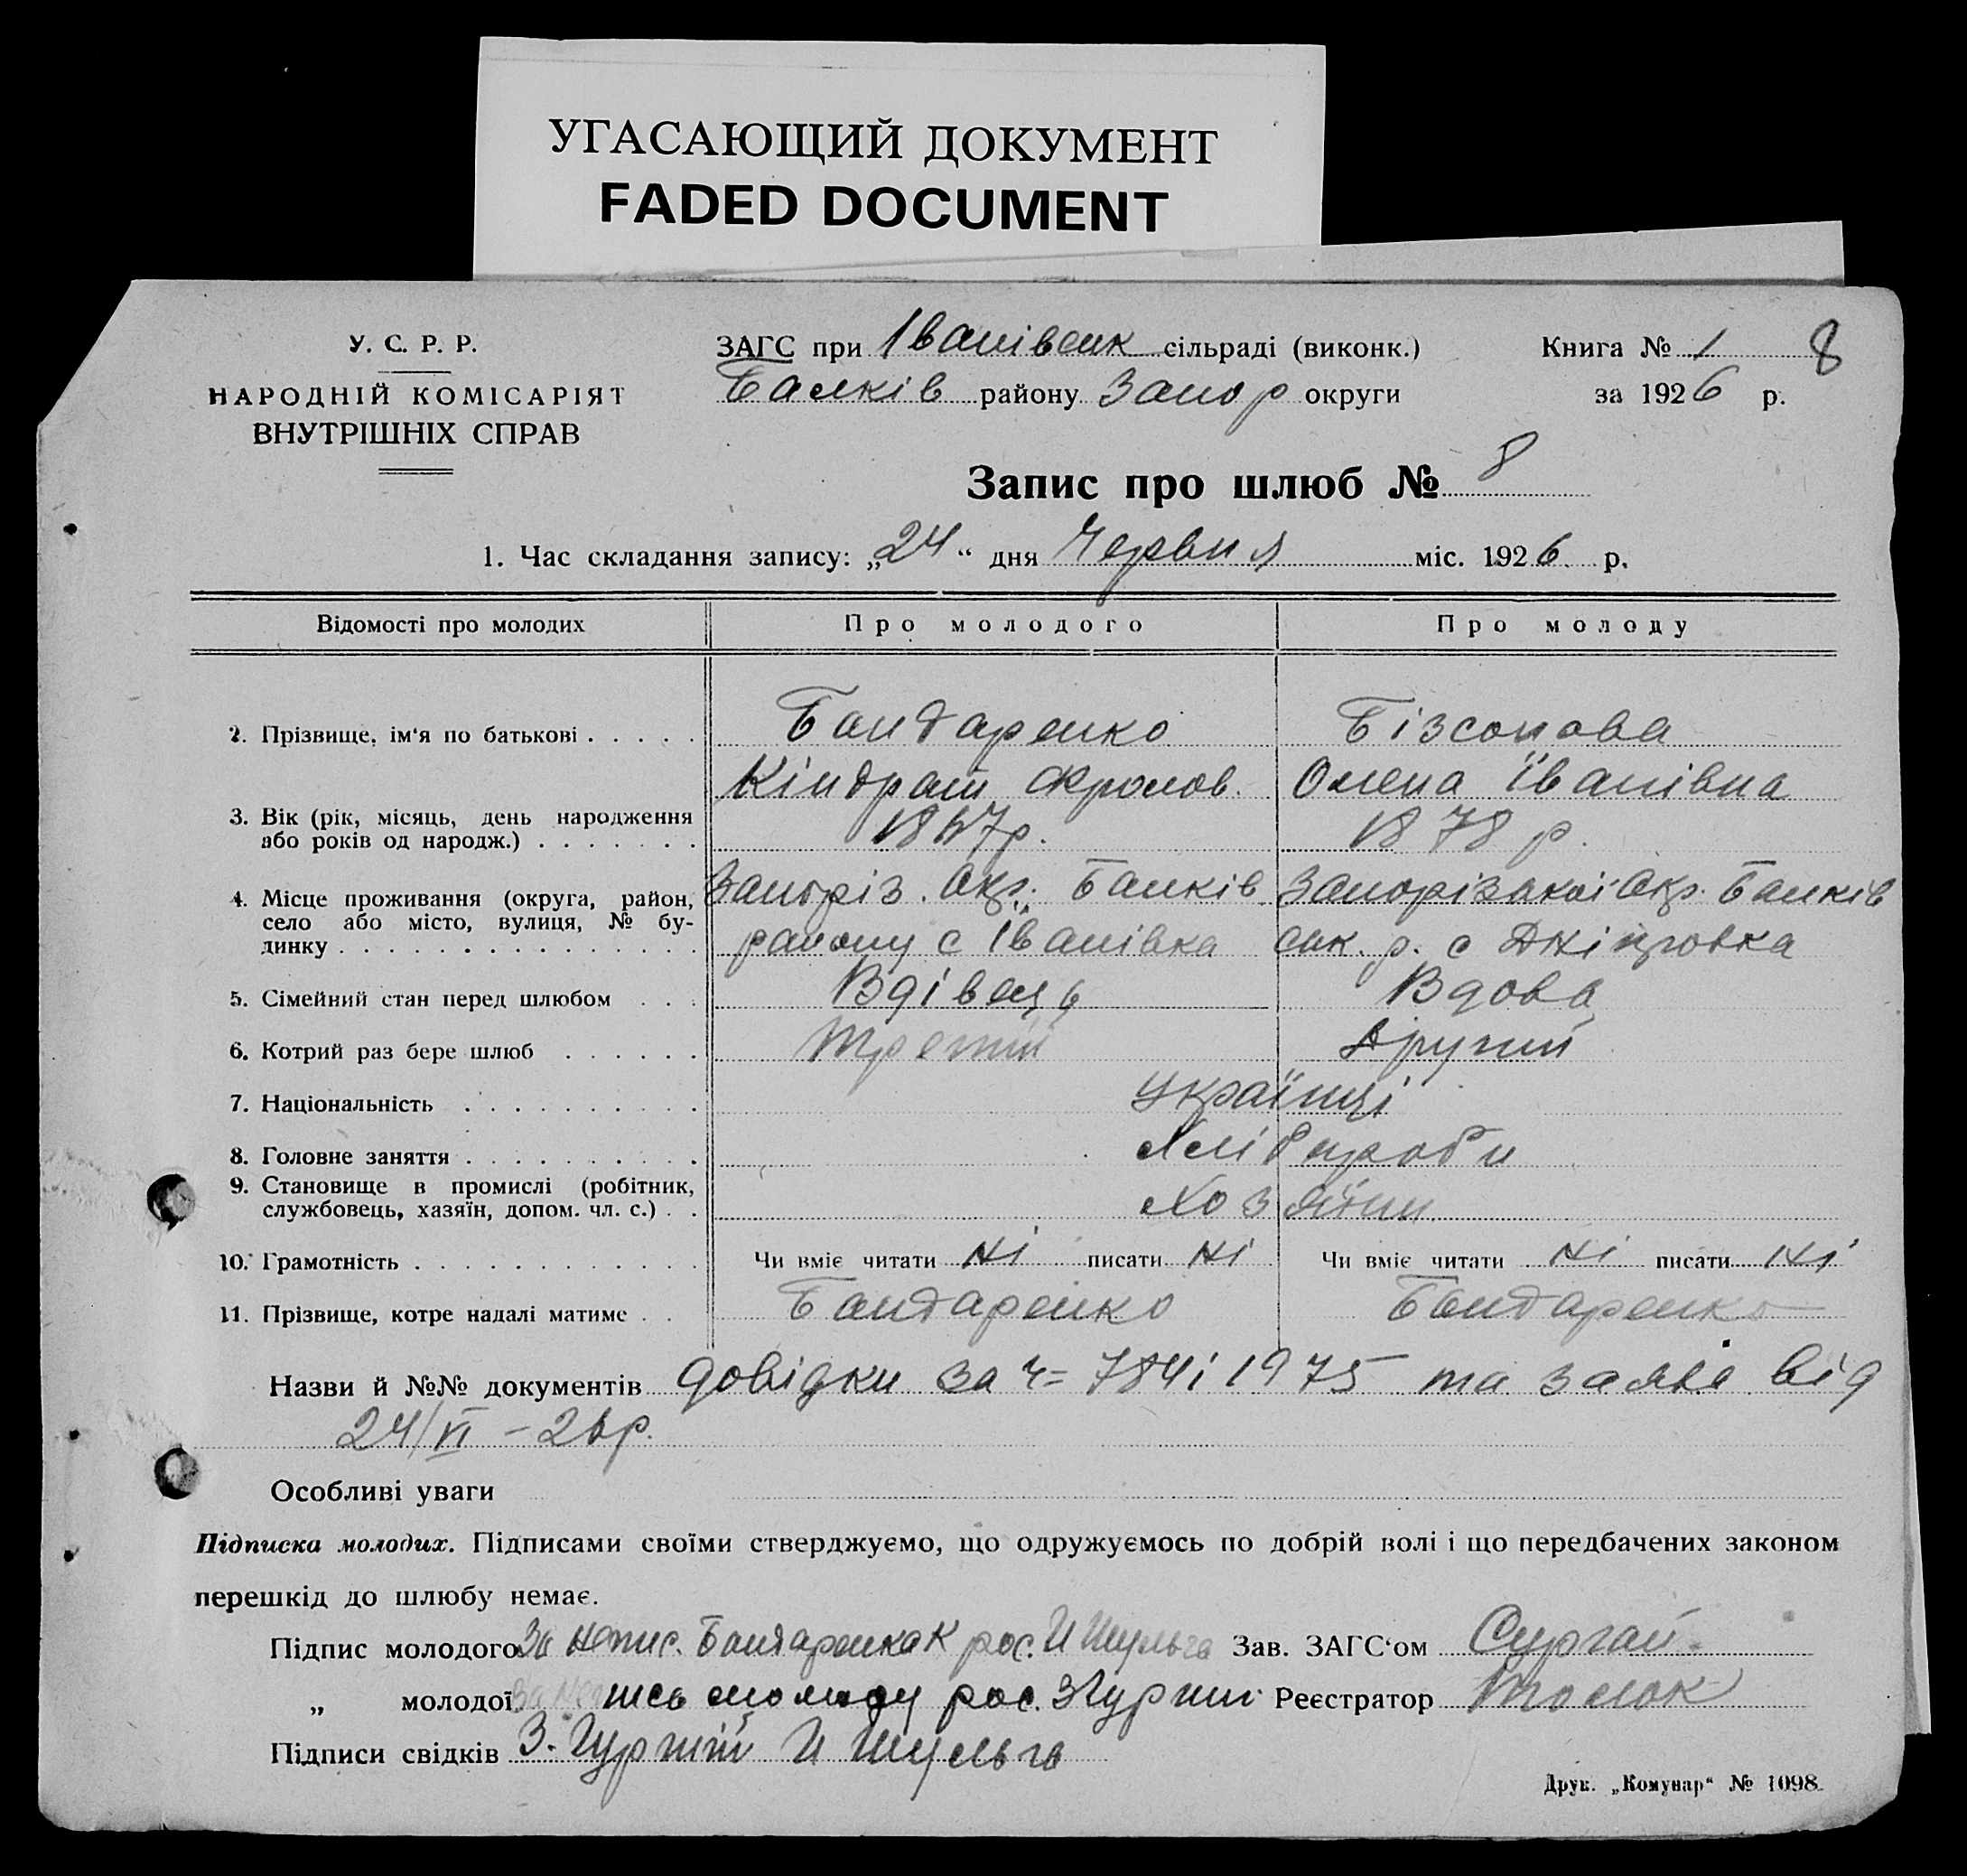 УГАСАЮЩИЙ ДОКУМЕНТ
FADED DOCUMENT
У. С. Р. Р.
НАРОДНІЙ КОМІСАРІЯТ
ВНУТРІШНІХ СПРАВ
ЗАГС при Іванівськ сільраді (виконк.)
Балків району Запор округи
Книга № 1 8
за 1926 р.
Запис про шлюб № 8
1. Час складання запису: „24“ дня Червня міс. 1926 р.
Відомості про молодих Про молодого Про молоду
2. Прізвище, ім‘я по батькові Бондаренко Бізсонова
Кіндрат Фролов. Олена Іванівна
3. Вік (рік, місяць, день народження
або років од народж.) 1867р. 1878 р.
4. Місце проживання (округа, район, Запоріз. Окр. Балків Запорізької Окр. Балків
село або місто, вулиця, № бу-
динку району с Іванівка ськ. р. с Дніпровка
5. Сімейний стан перед шлюбом Вдівець Вдова
6. Котрий раз бере шлюб Третій Другий
7. Національність Українці
8. Головне заняття Хлібороби
9. Становище в промислі (робітник,
службовець, хазяїн, допом. чл. с.) Хозяїни
10. Грамотність Чи вміє читати Ні писати Ні Чи вміє читати Ні писати Ні
11. Прізвище, котре надалі матиме Бондаренко Бондаренко
Назви й №№ документів довідки за ч= 784 і 1975 та заяві від
24/VI – 26р.
Особливі уваги
Підписка молодих. Підписами своїми стверджуємо, що одружуємось по добрій волі і що передбачених законом
перешкід до шлюбу немає.
Підпис молодого За непис. Бондаренка К рос. И Шульга Зав. ЗАГС‘ом Сургай
„ молодої молоду рос. З Гургий Реєстратор
Підписи свідків З. Гургий И Шульга
Друк. „Комунар“ № 1098